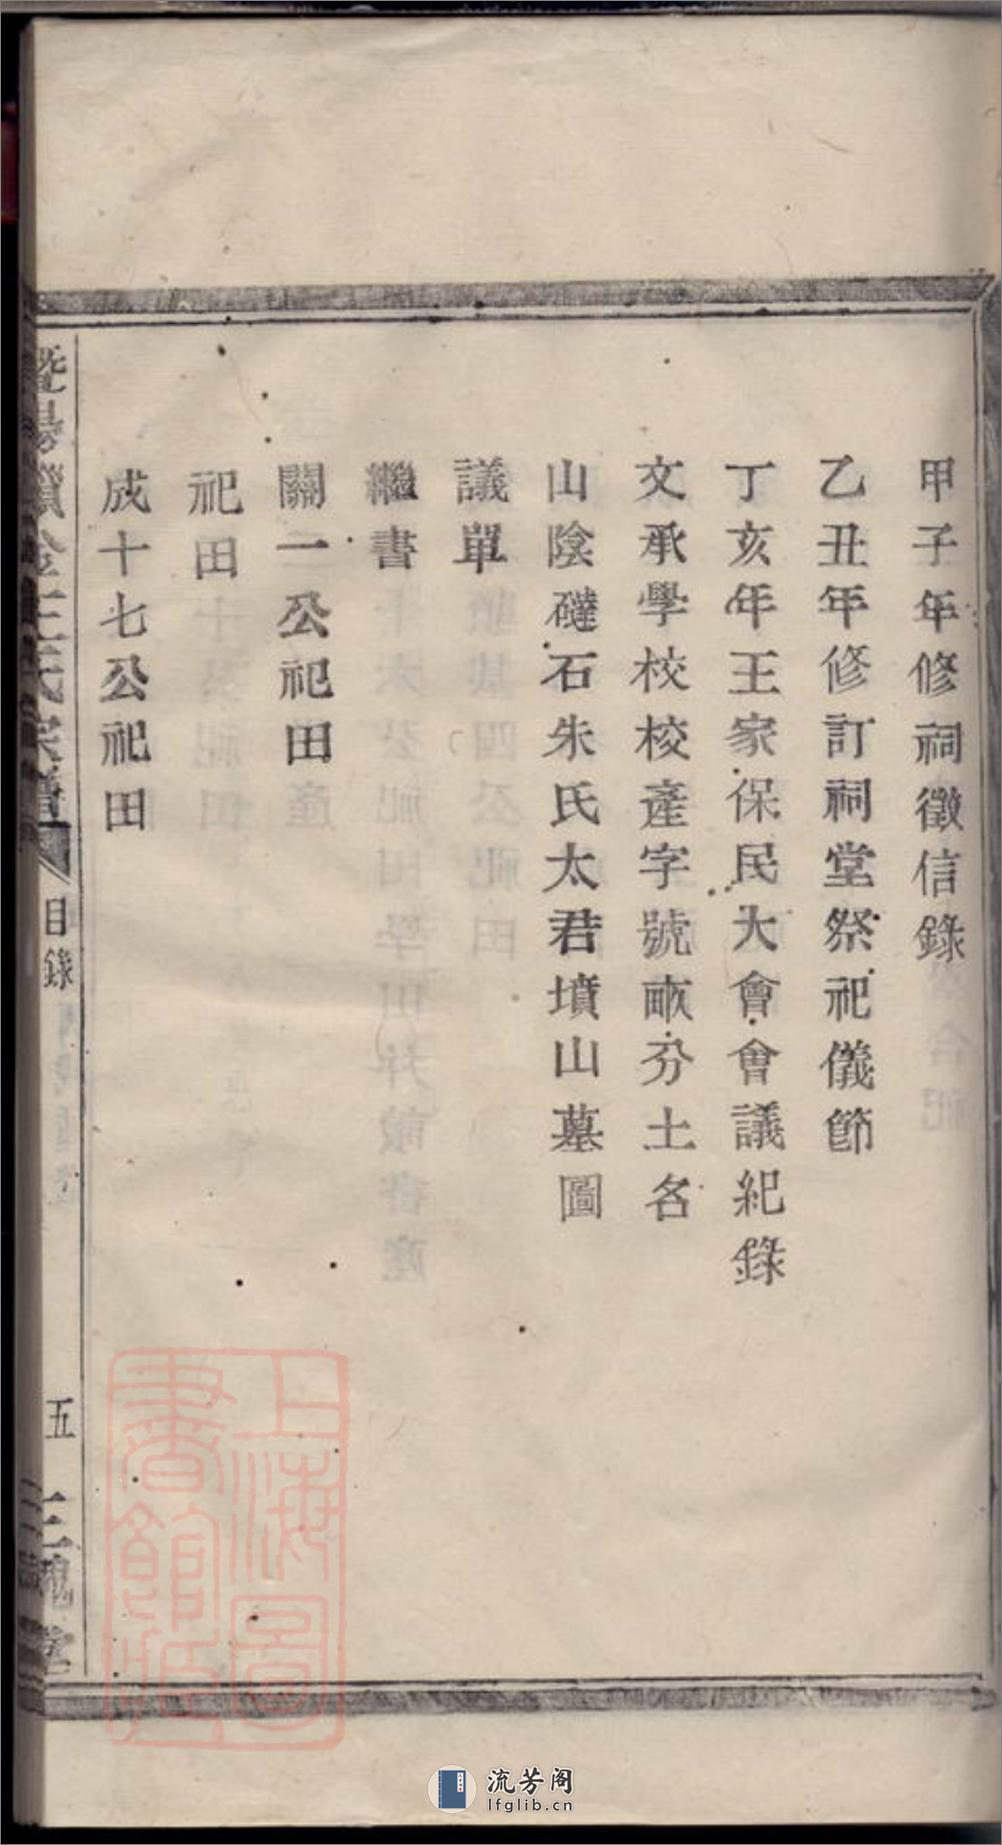 甲子年修祠徵信錄
乙丑年修訂祠堂祭祀儀節
丁亥年王家保民大會會議紀錄
文承學校校產字號畝分土名
山陰磋石朱氏太君墳山墓圖
議單
繼書
關一公祀田
祀田
成十七公祀田
王氏宗譜
目錄
五
三槐堂
上海圖書館藏
流芳阁
lfglib.cn